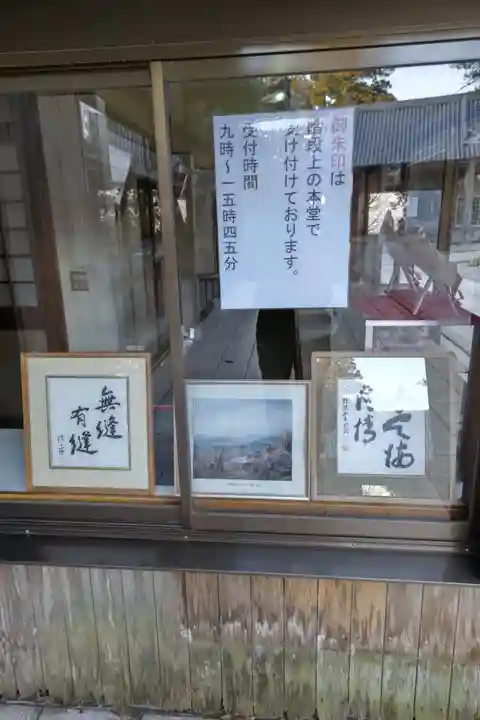 御朱印は
階段上の本堂で
受け付けております。
受付時間
九時～一五時四五分
無縫
有縫